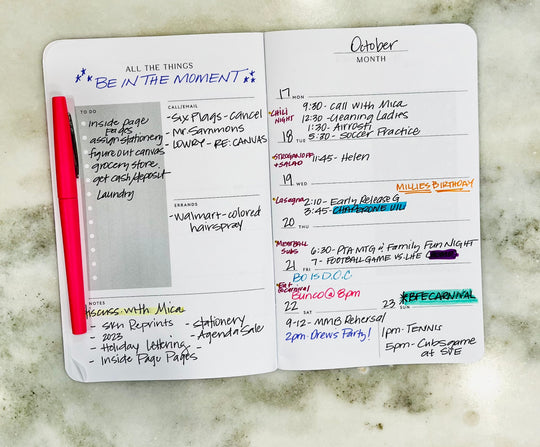 ALL THE THINGS
BE IN THE MOMENT
TO DO
inside page
Pages
assign stationery
figure out canvas
grocery store
get cash/deposit
Laundry
CALL/EMAIL
-Six Flags - cancel
-Mr Sammons
-LOWRY - RE: CANVAS
ERRANDS
-Walmart - colored
hairspray
NOTES
Discuss with Mica
- Reprints
2023
- Holiday Lettering
- Inside Page Pages
- Stationery
- Agenda Sale
-
October
MONTH
17 MON
CHILI
NIGHT
9:30 - Call with Mica
12:30 - Cleaning Ladies
1:30 - Airrosti
5:30 - Soccer Practice
18 TUE
STROGANOFF
+ SALAD
11:45 - Helen
19 WED
MILLIES BIRTHDAY
Lasagna
2:10 - Early Release G
3:45 - CHAPERONE UIL
20 THU
MEATBALL
SUBS
6:30 - PTA MTG & Family Fun NIGHT
7 - FOOTBALL GAME VS. LIFE
21 FRI
BO IS D.O.C
Eat @
carnival
Bunco @ 8pm
22 SAT
9-12 - MMB Rehersal
2pm - Drews Party!
23 SUN
*BFE CARNIVAL
1pm - TENNIS
5pm - Cubs game
at SVE